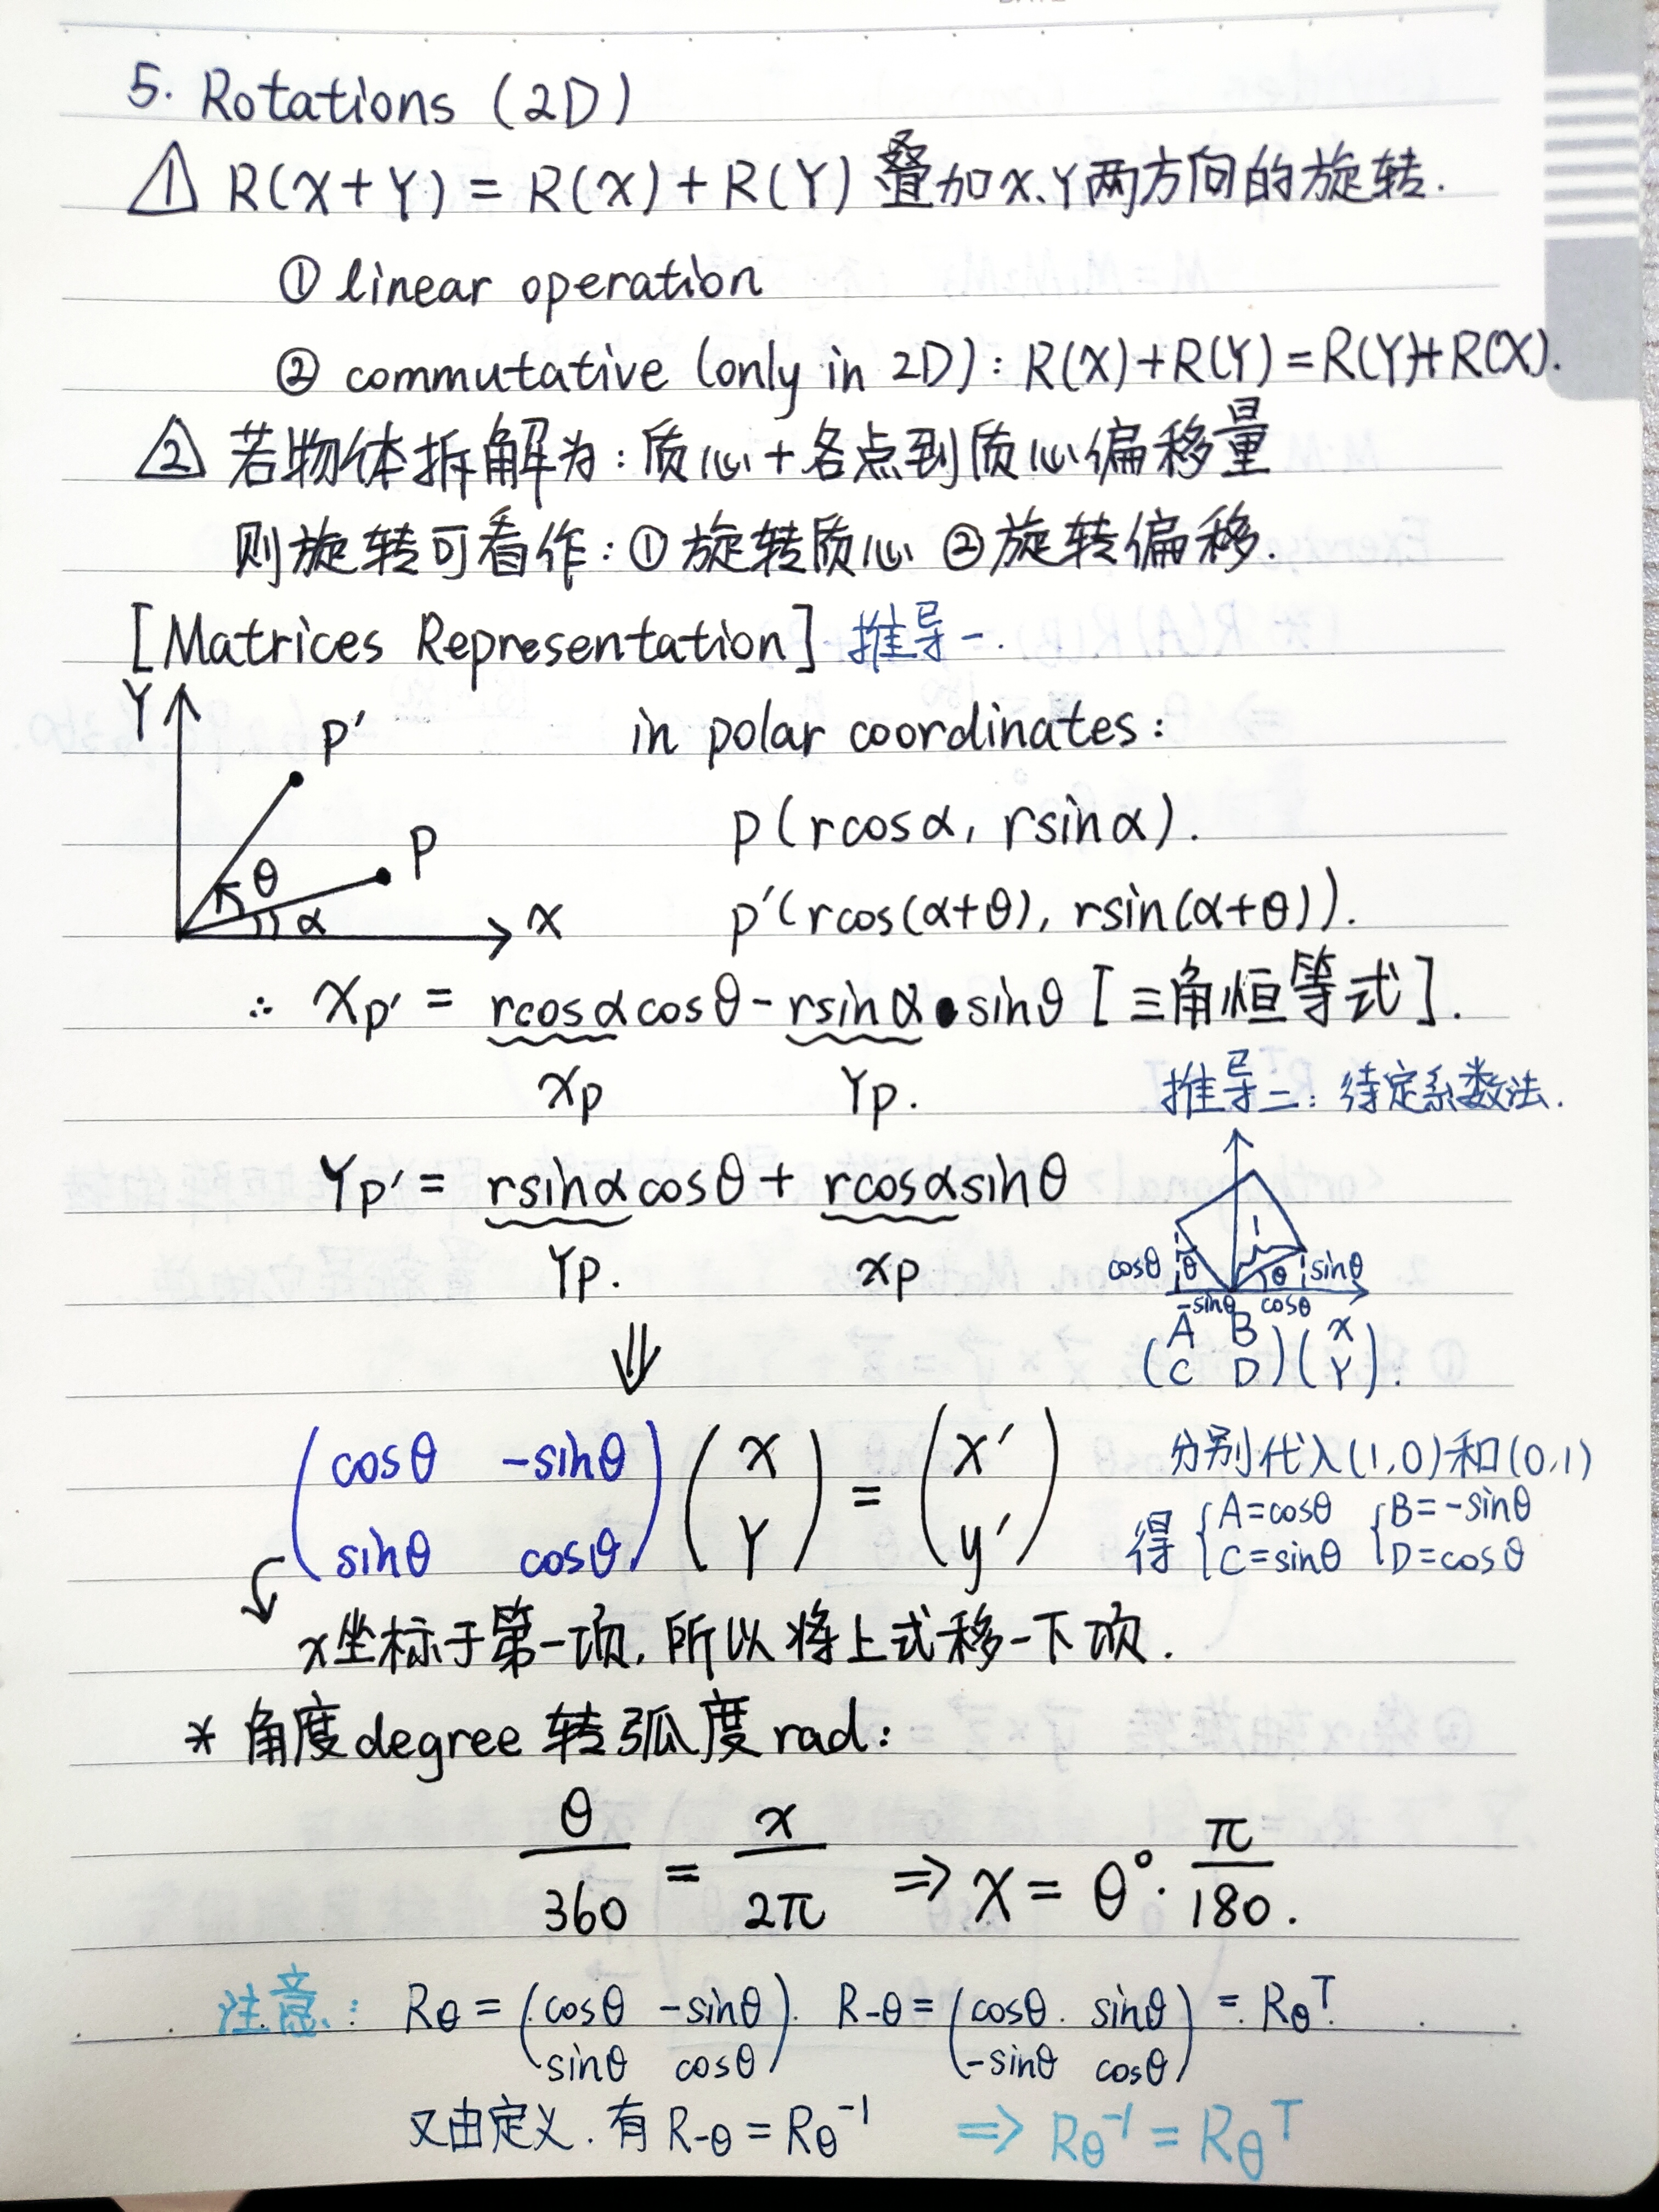 5. Rotations (2D)
△1 R(X+Y) = R(X) + R(Y) 叠加X、Y两方向的旋转.
① linear operation
② commutative (only in 2D): R(X)+R(Y)=R(Y)+R(X).
△2 若物体拆解为：质心+各点到质心偏移量
则旋转可看作：①旋转质心 ②旋转偏移.
[Matrices Representation] 推导一.
Y
P'
in polar coordinates:
P
p(rcosα, rsinα).
θ
α
X
p'(rcos(α+θ), rsin(α+θ)).
∴ Xp' = rcosαcosθ - rsinα sinθ [三角恒等式].
Xp Yp.
Yp' = rsinαcosθ + rcosαsinθ
Yp. Xp
⇓
推导二：待定系数法.
1
cosθ θ θ sinθ
-sinθ cosθ
(A B
C D)(X
Y).
分别代入(1,0)和(0,1)
得 {A=cosθ {B=-sinθ
C=sinθ D=cosθ
(cosθ -sinθ
sinθ cosθ) (X
Y) = (X'
y')
x坐标于第一项,所以将上式移一下项.
* 角度degree 转弧度rad:
θ/360 = x/2π ⇒ X = θ°·π/180.
注意: Rθ = (cosθ -sinθ
sinθ cosθ). R-θ = (cosθ. sinθ
-sinθ cosθ) = RθT.
又由定义.有 R-θ = Rθ⁻¹ ⇒ Rθ⁻¹ = RθT